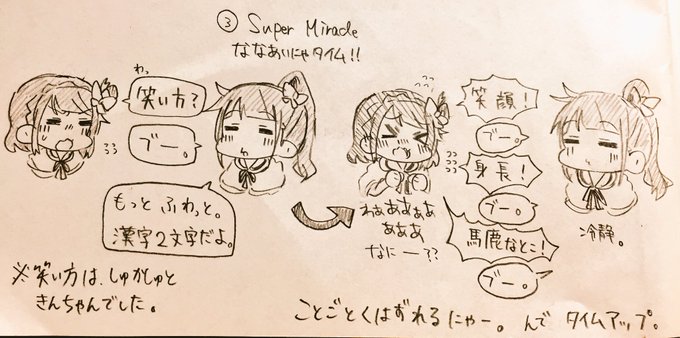 ③ Super Miracle
ななあいにゃタイム!!
わっ
笑い方?
ブー。
もっと ふわっと。
漢字2文字だよ。
※笑い方は、しゅかしゅと
きんちゃんでした。
笑顔!
ブー。
身長!
ブー。
馬鹿なとこ!
ブー。
わぁああぁああ
ぁああ
なにー??
冷静。
ことごとくはずれるにゃー。んで タイムアップ。